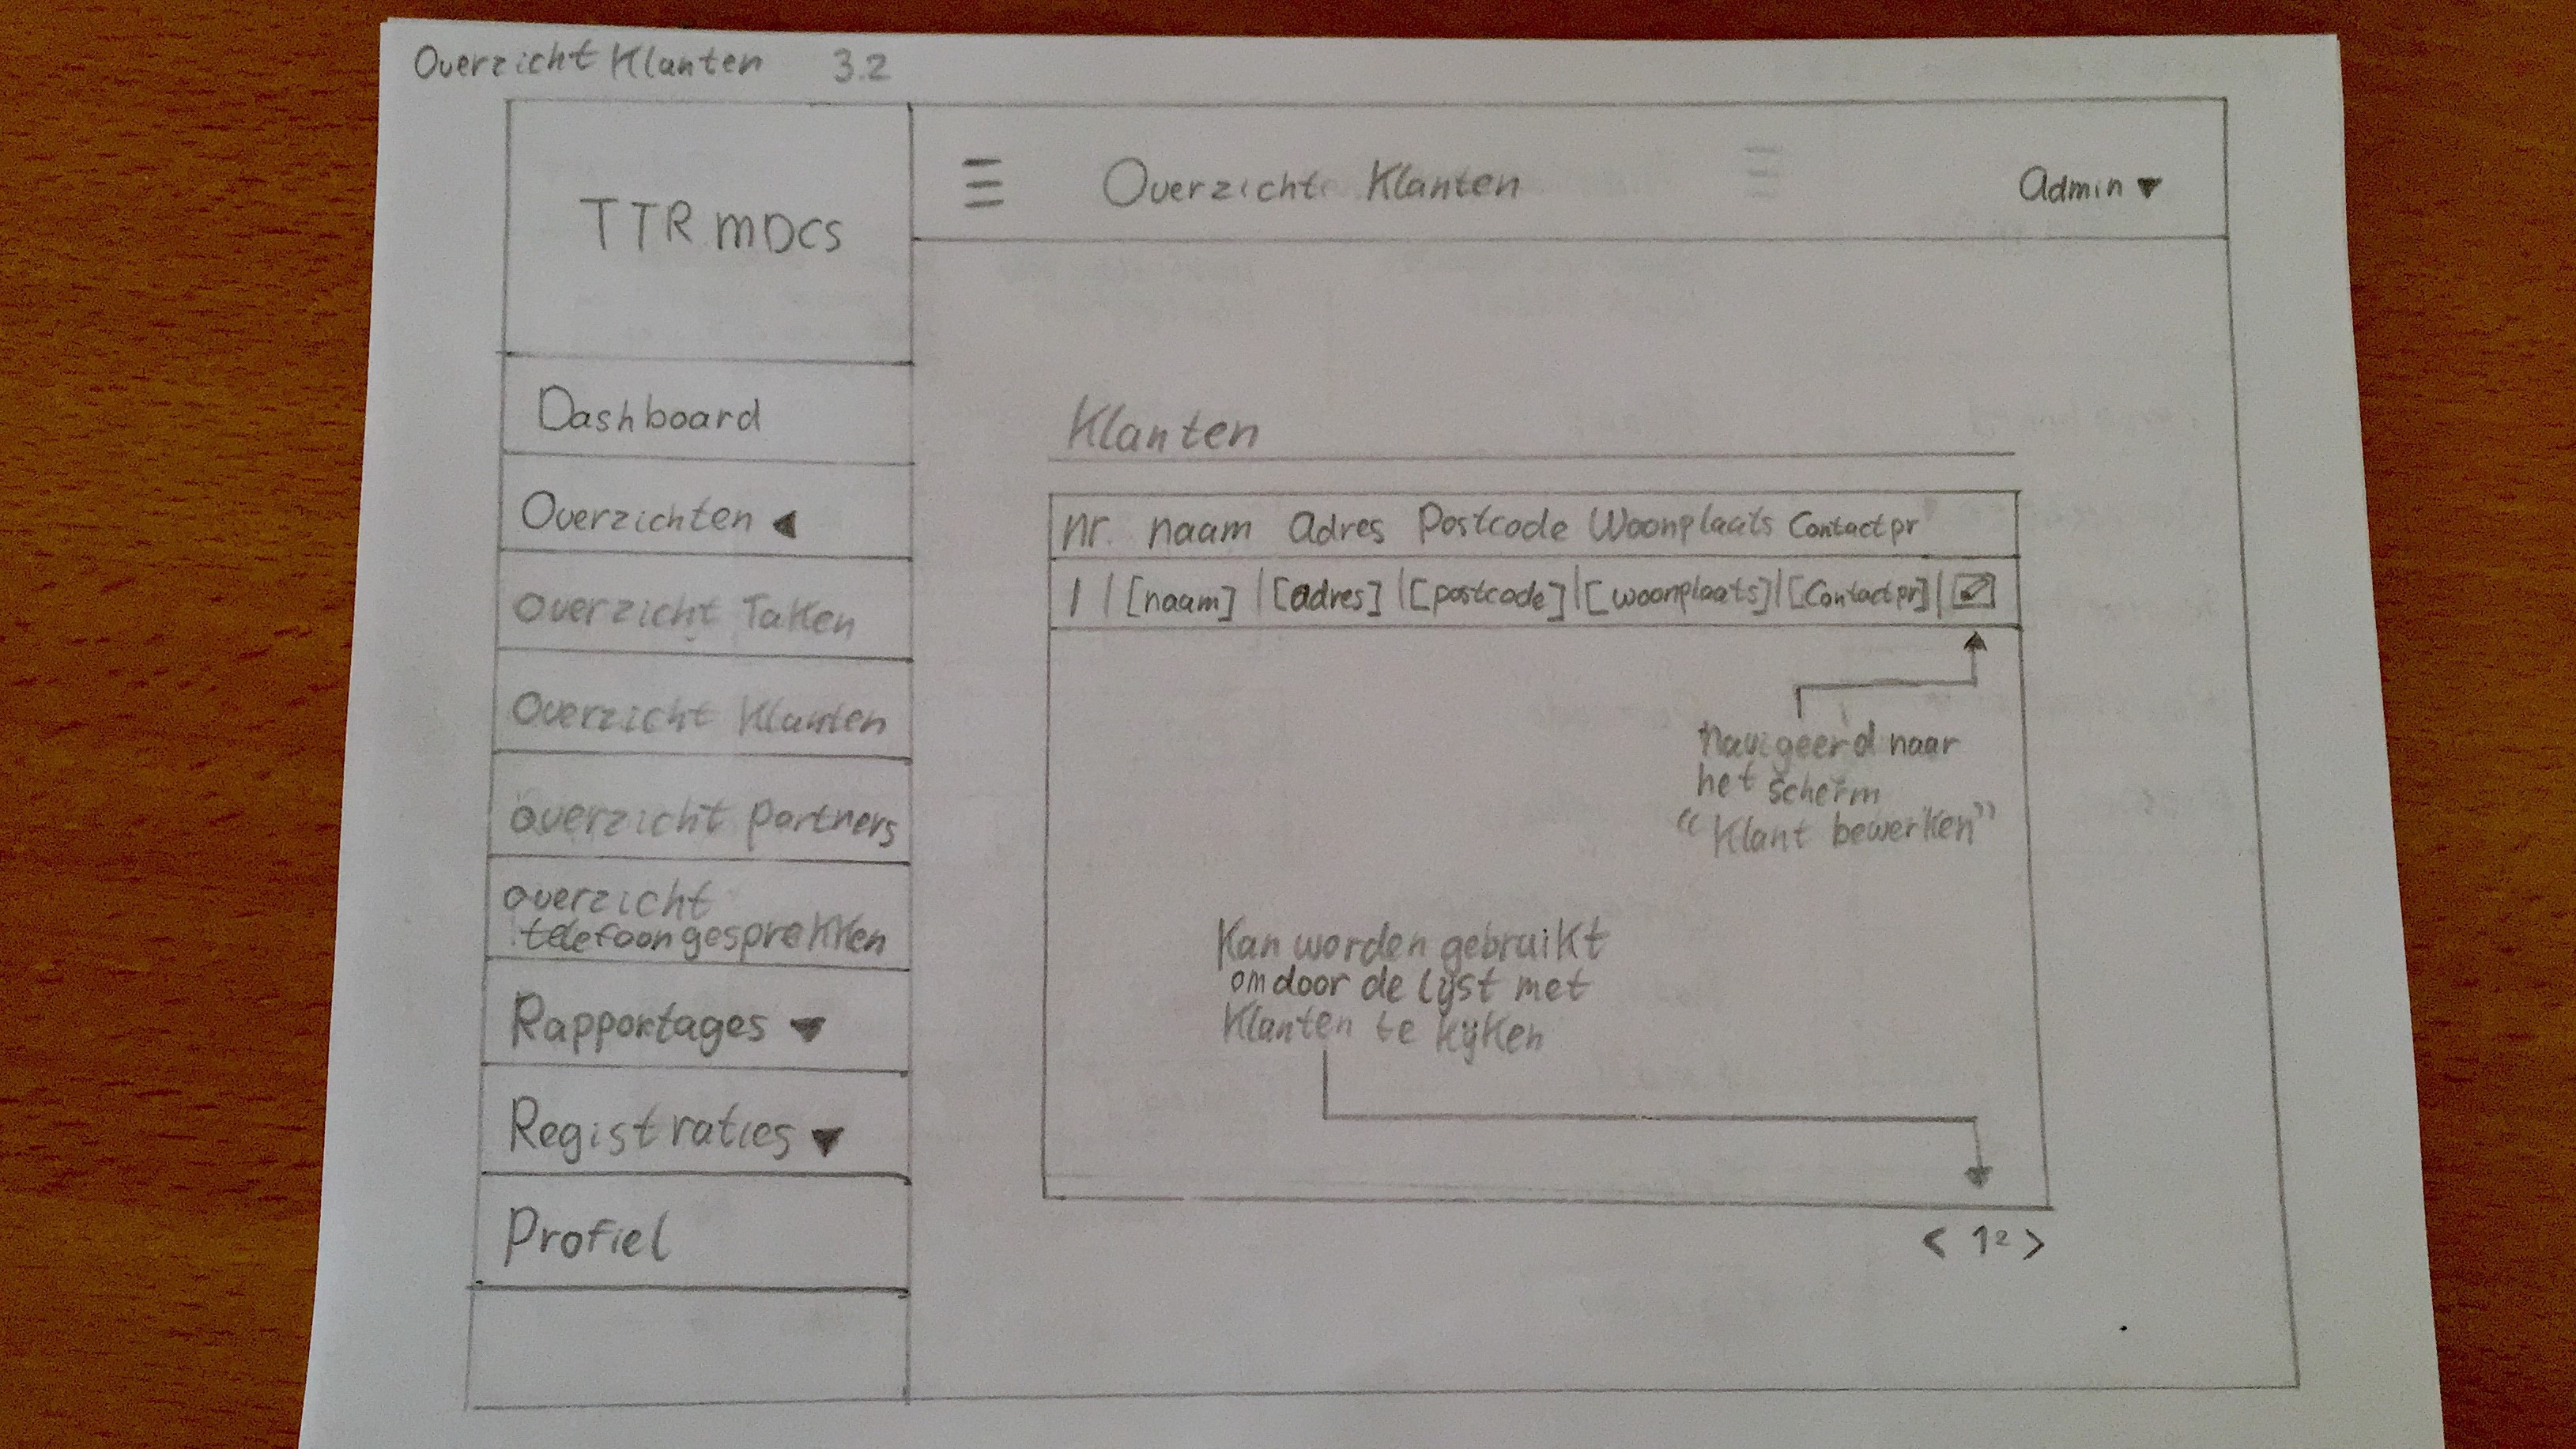 Overzicht Klanten 3.2
TTR MDCS
☰ Overzicht Klanten Admin ▼
Dashboard
Overzichten ◀
Overzicht Taken
Overzicht Klanten
Overzicht partners
overzicht
telefoongesprekken
Rapportages ▼
Registraties ▼
Profiel
Klanten
nr. naam Adres Postcode Woonplaats Contactpr
1 | [naam] | [adres] | [postcode] | [woonplaats] | [Contactpr] |
Navigeerd naar
het scherm
“Klant bewerken”
Kan worden gebruikt
om door de lijst met
Klanten te kijken
< 1 2 >